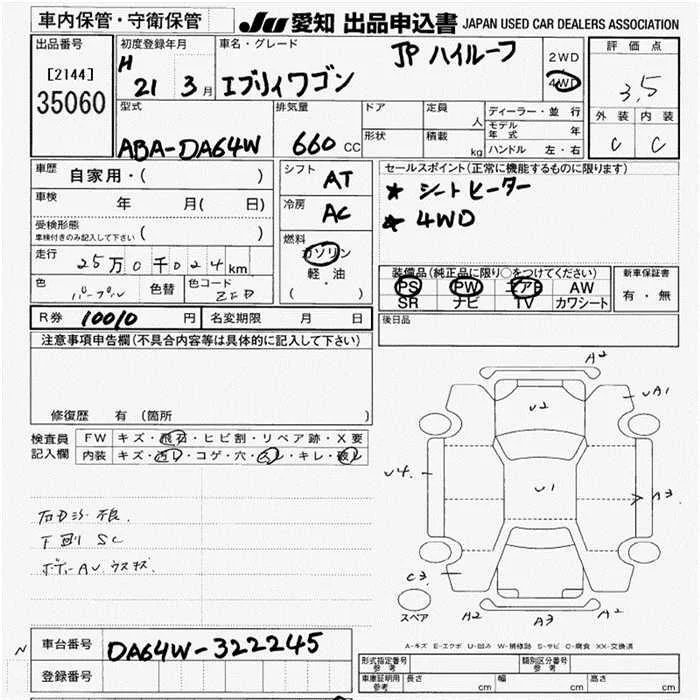 車内保管・守衛保管
JU 愛知 出品申込書 JAPAN USED CAR DEALERS ASSOCIATION
出品番号
[2144]
35060
初度登録年月
H 21 3 月
車名・グレード
エブリィワゴン JP ハイルーフ
2WD
4WD
評価点
3.5
外装 内装
C C
型式
ABA-DA64W
排気量
660 CC
ドア
形状
定員 人
積載 kg
ディーラー・並行
モデル年式 年
ハンドル 左・右
車歴 自家用・( )
車検 年 月( 日)
受検形態
車検付きのみ記入して下さい ( )
走行 25万0千024km
色 パープル 色替 色コード ZFD
シフト AT
冷房 AC
燃料
ガソリン
軽・油
( )
セールスポイント(正常に機能するものに限ります)
★ シートヒーター
★ 4WD
装備品(純正品に限り○をつけてください)
PS PW エアB AW
SR ナビ TV カワシート
新車保証書
有・無
R券 10010 円 名変期限 月 日
後日品
注意事項申告欄(不具合内容等は具体的に記入して下さい)
修復歴 有 (箇所 )
検査員
記入欄
FW キズ・飛石・ヒビ割・リペア跡・X要
内装 キズ・汚レ・コゲ・穴・スレ・キレ・破レ
下回 SC
ボデーAU ウスキズ
A2
U2
UA1
U4
U1
A3
C3
スペア
A2
A3
A2
A-キズ E-エクボ U-凹み W-補修跡 S-サビ C-腐食 XX-交換済
N
車台番号 DA64W-322245
登録番号
形式指定番号
参考
類別区分番号
参考
車庫証明用
参考
長さ cm 幅 cm 高さ cm